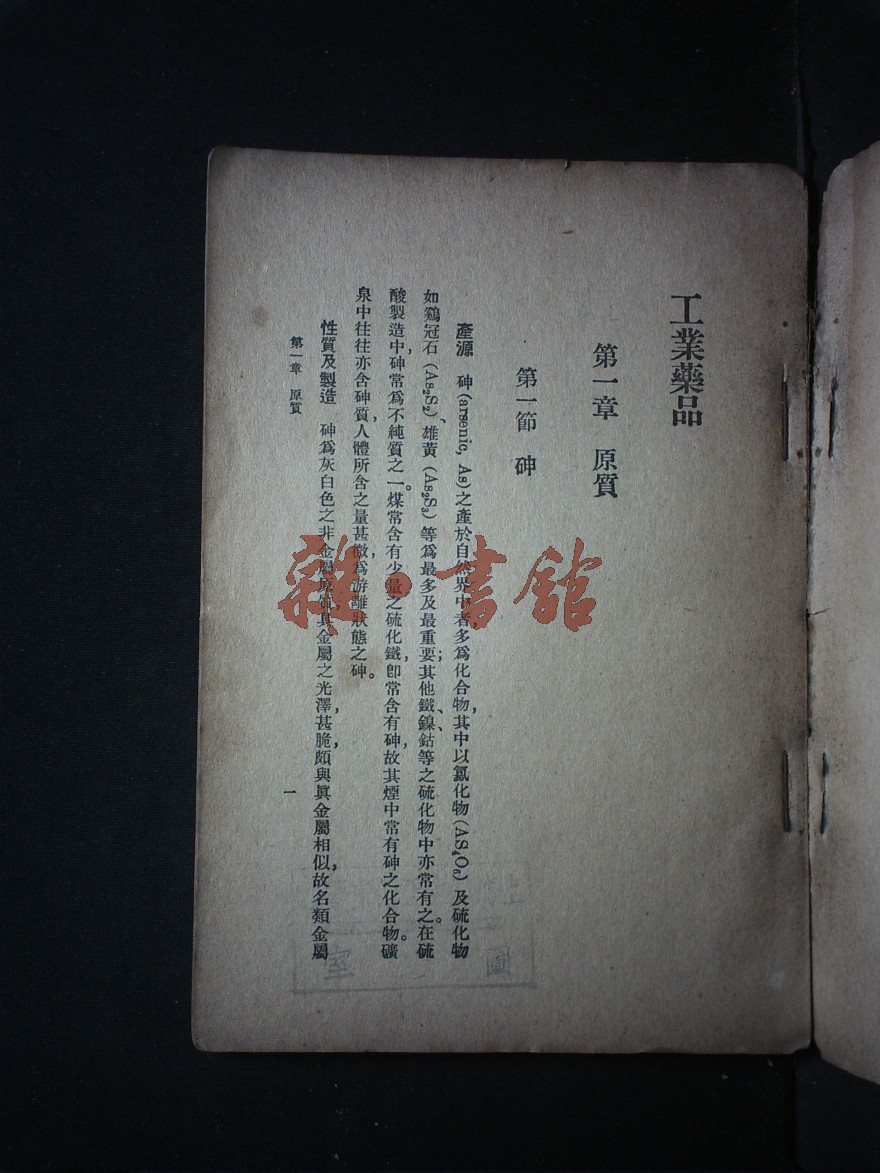 工業藥品
第一章　原質
第一節　砷
產源　砷(arsenic, As)之產於自然界中者，多爲化合物，其中以氯化物(AS₄O₆)及硫化物
如鷄冠石(As₂S₂)、雄黃(As₂S₃)等爲最多及最重要；其他鐵、鎳、鈷等之硫化物中亦常有之。在硫
酸製造中，砷常爲不純質之一。煤常含有少量之硫化鐵，卽常含有砷，故其煙中常有砷之化合物。礦
泉中往往亦含砷質，人體所含之量甚微，爲游離狀態之砷。
性質及製造　砷爲灰白色之非金屬原質，具金屬之光澤，甚脆，頗與眞金屬相似，故名類金屬
第一章　原質
一
雜·書館
室
圖